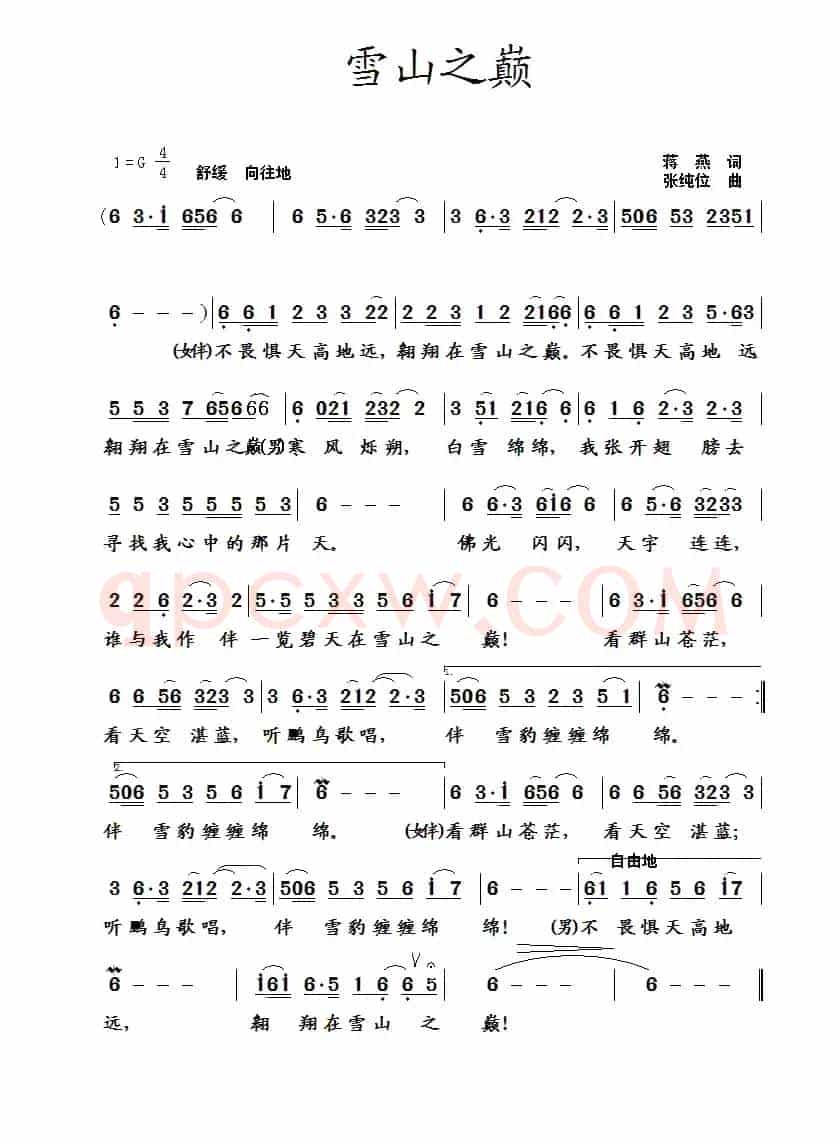 雪山之巅
1=G 4/4 舒缓 向往地 蒋 燕 词
张纯位 曲
(6 3·i 656 6 | 6 5·6 323 3 | 3 6·3 212 2·3 | 506 53 2351 |
6 - - - ) | 6 6 1 2 3 3 22 | 2 2 3 1 2 2166 | 6 6 1 2 3 5·63 |
(女伴)不畏惧天高地远,翱翔在雪山之巅。不畏惧天高地 远
5 5 3 7 656 66 | 6 021 232 2 | 3 51 216 6 | 6 1 6 2·3 2·3 |
翱翔在雪山之巅(男)寒 风 烁朔, 白雪 绵绵,我张开翅 膀去
5 5 3 5 5 5 5 3 | 6 - - - | 6 6·3 6i6 6 | 6 5·6 3233 |
寻找我心中的那片 天。 佛光 闪闪, 天宇 连连,
qpcxw.COM
2 2 6 2·3 2 | 5·5 5 3 3 5 6 i 7 | 6 - - - | 6 3·i 656 6 |
谁与我作 伴 一览碧天在雪山之 巅! 看群山苍茫,
1.
6 6 56 323 3 | 3 6·3 212 2·3 | 506 5 3 2 3 5 1 | 6 - - - :||
看天空 湛蓝, 听鹏鸟歌唱, 伴 雪豹缠缠绵 绵。
2.
506 5 3 5 6 i 7 | 6 - - - | 6 3·i 656 6 | 6 6 56 323 3 |
伴 雪豹缠缠绵 绵。 (女伴)看群山苍茫, 看天空 湛蓝;
自由地
3 6·3 212 2·3 | 506 5 3 5 6 i 7 | 6 - - - | 61 1 6 5 6 i7 |
听鹏鸟歌唱, 伴 雪豹缠缠绵 绵! (男)不 畏惧天高地
6 - - - | i6i 6·5 1 6 6 5 | 6 - - - | 6 - - - ||
远, 翱 翔在雪山 之 巅!